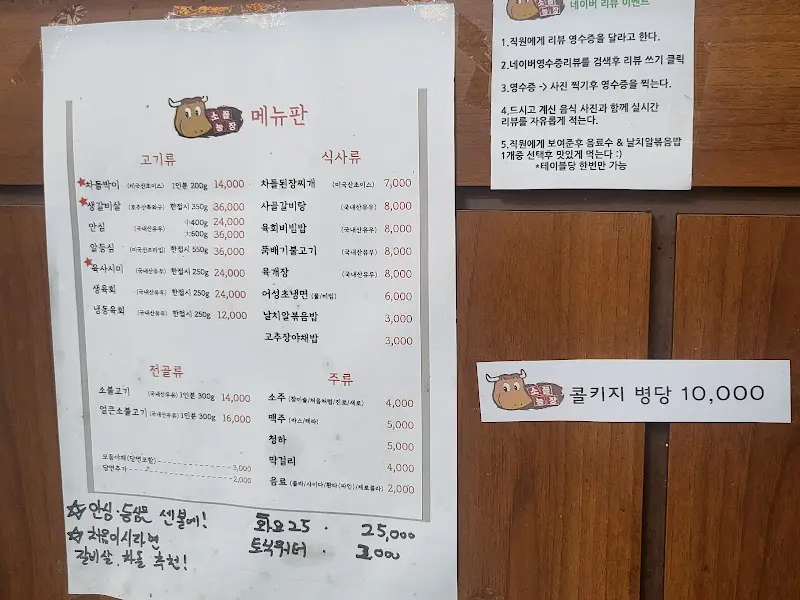 소플
농장
메뉴판
고기류
★차돌박이 (미국산초이스) 1인분 200g 14,000
★생갈비살 (호주산흑와규) 한접시 350g 36,000
안심 (국내산유우) 小400g 24,000
大600g 36,000
알등심 (미국산프라임) 한접시 550g 36,000
★육사시미 (국내산유우) 한접시 250g 24,000
생육회 (국내산유우) 한접시 250g 24,000
냉동육회 (국내산유우) 한접시 250g 12,000
식사류
차돌된장찌개 (미국산초이스) 7,000
사골갈비탕 (국내산유우) 8,000
육회비빔밥 (국내산유우) 8,000
뚝배기불고기 (국내산유우) 8,000
육개장 (국내산유우) 8,000
어성초냉면 (물/비빔) 6,000
날치알볶음밥 3,000
고추장야채밥 3,000
전골류
소불고기 (국내산유우) 1인분 300g 14,000
얼큰소불고기 (국내산유우) 1인분 300g 16,000
모둠야채(당면포함) 3,000
당면추가 2,000
주류
소주 (참이슬/처음처럼/진로/새로) 4,000
맥주 (카스/테라) 5,000
청하 5,000
막걸리 4,000
음료 (콜라/사이다/환타(파인)/제로콜라) 2,000
☆안심·등심은 센불에!
☆처음이시라면
갈비살, 차돌 추천!
화요25 · 25,000
토닉워터 · 2,000
네이버 리뷰 이벤트
1.직원에게 리뷰 영수증을 달라고 한다.
2.네이버영수증리뷰를 검색후 리뷰 쓰기 클릭
3.영수증 -> 사진 찍기후 영수증을 찍는다.
4.드시고 계신 음식 사진과 함께 실시간
리뷰를 자유롭게 적는다.
5.직원에게 보여준후 음료수 & 날치알볶음밥
1개중 선택후 맛있게 먹는다 :)
*테이블당 한번만 가능
소플
농장
콜키지 병당 10,000